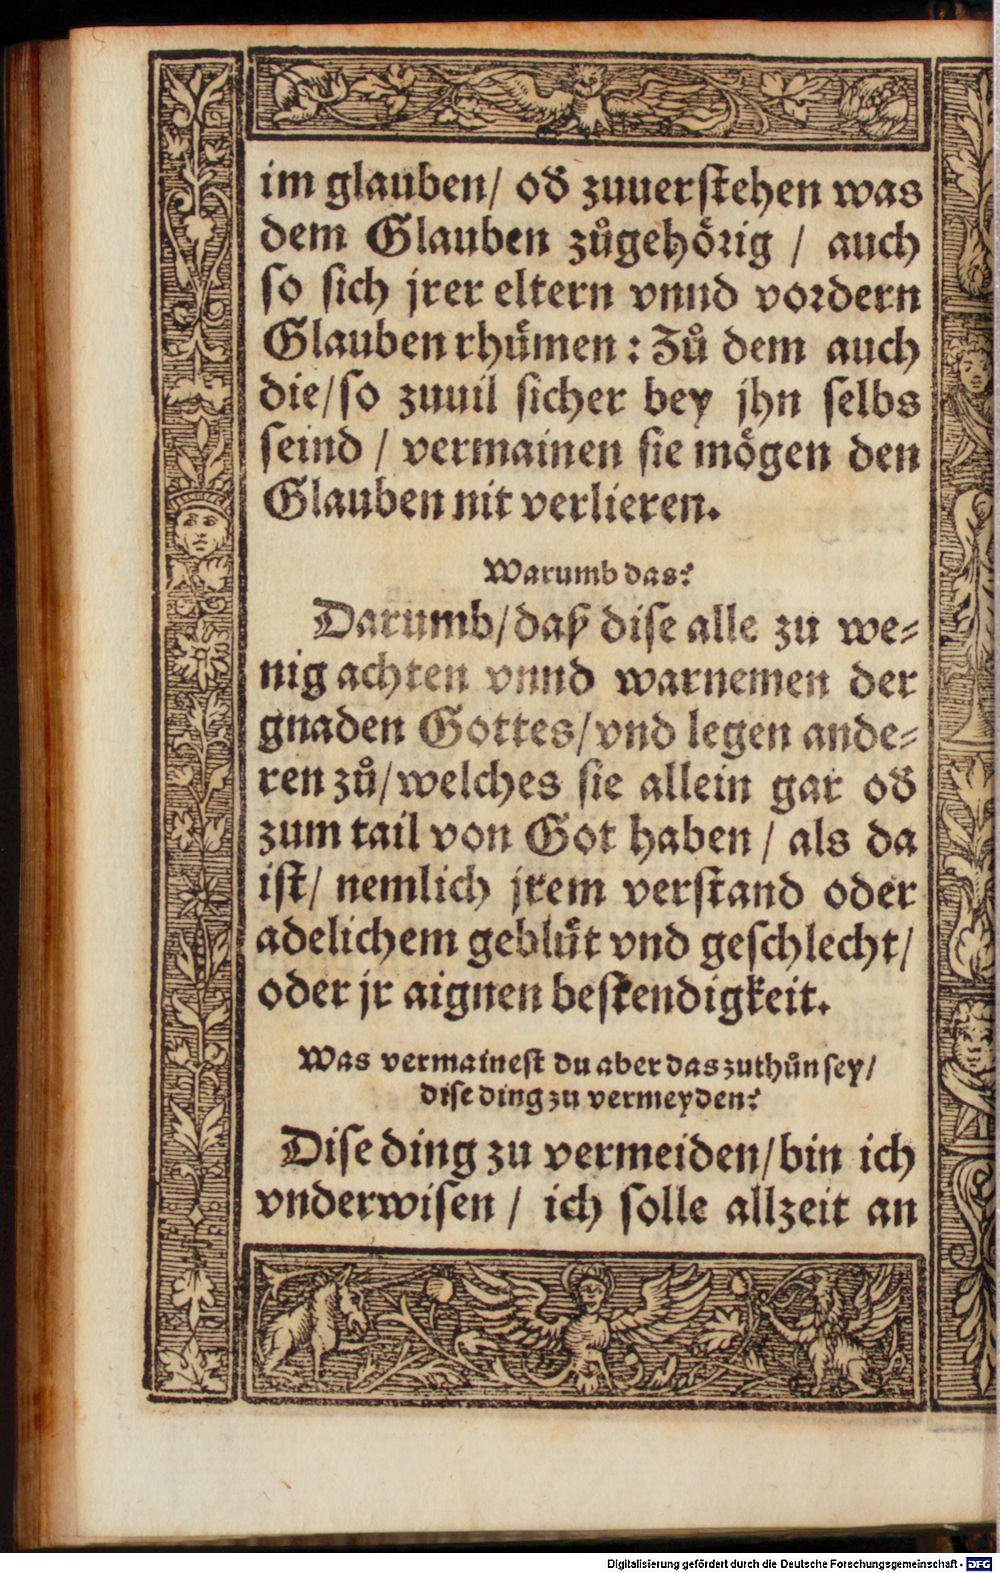 im glauben/ od̕ zuuerstehen was
dem Glauben zůgehoͤrig / auch
so sich jrer eltern vnnd vordern
Glauben rhuͤmen : Zů dem auch
die/so zuuil sicher bey jhn selbs
seind / vermainen sie moͤgen den
Glauben nit verlieren.
Warumb das?
Darumb/daß dise alle zu we⸗
nig achten vnnd warnemen der
gnaden Gottes/vnd legen ande⸗
ren zů/welches sie allein gar od̕
zum tail von Got haben / als da
ist/ nemlich jrem verstand oder
adelichem gebluͤt vnd geschlecht/
oder jr aignen bestendigkeit.
Was vermainest du aber das zuthůn sey/
dise ding zu vermeyden?
Dise ding zu vermeiden/bin ich
vnderwisen / ich solle allzeit an
Digitalisierung gefördert durch die Deutsche Forschungsgemeinschaft - DFG